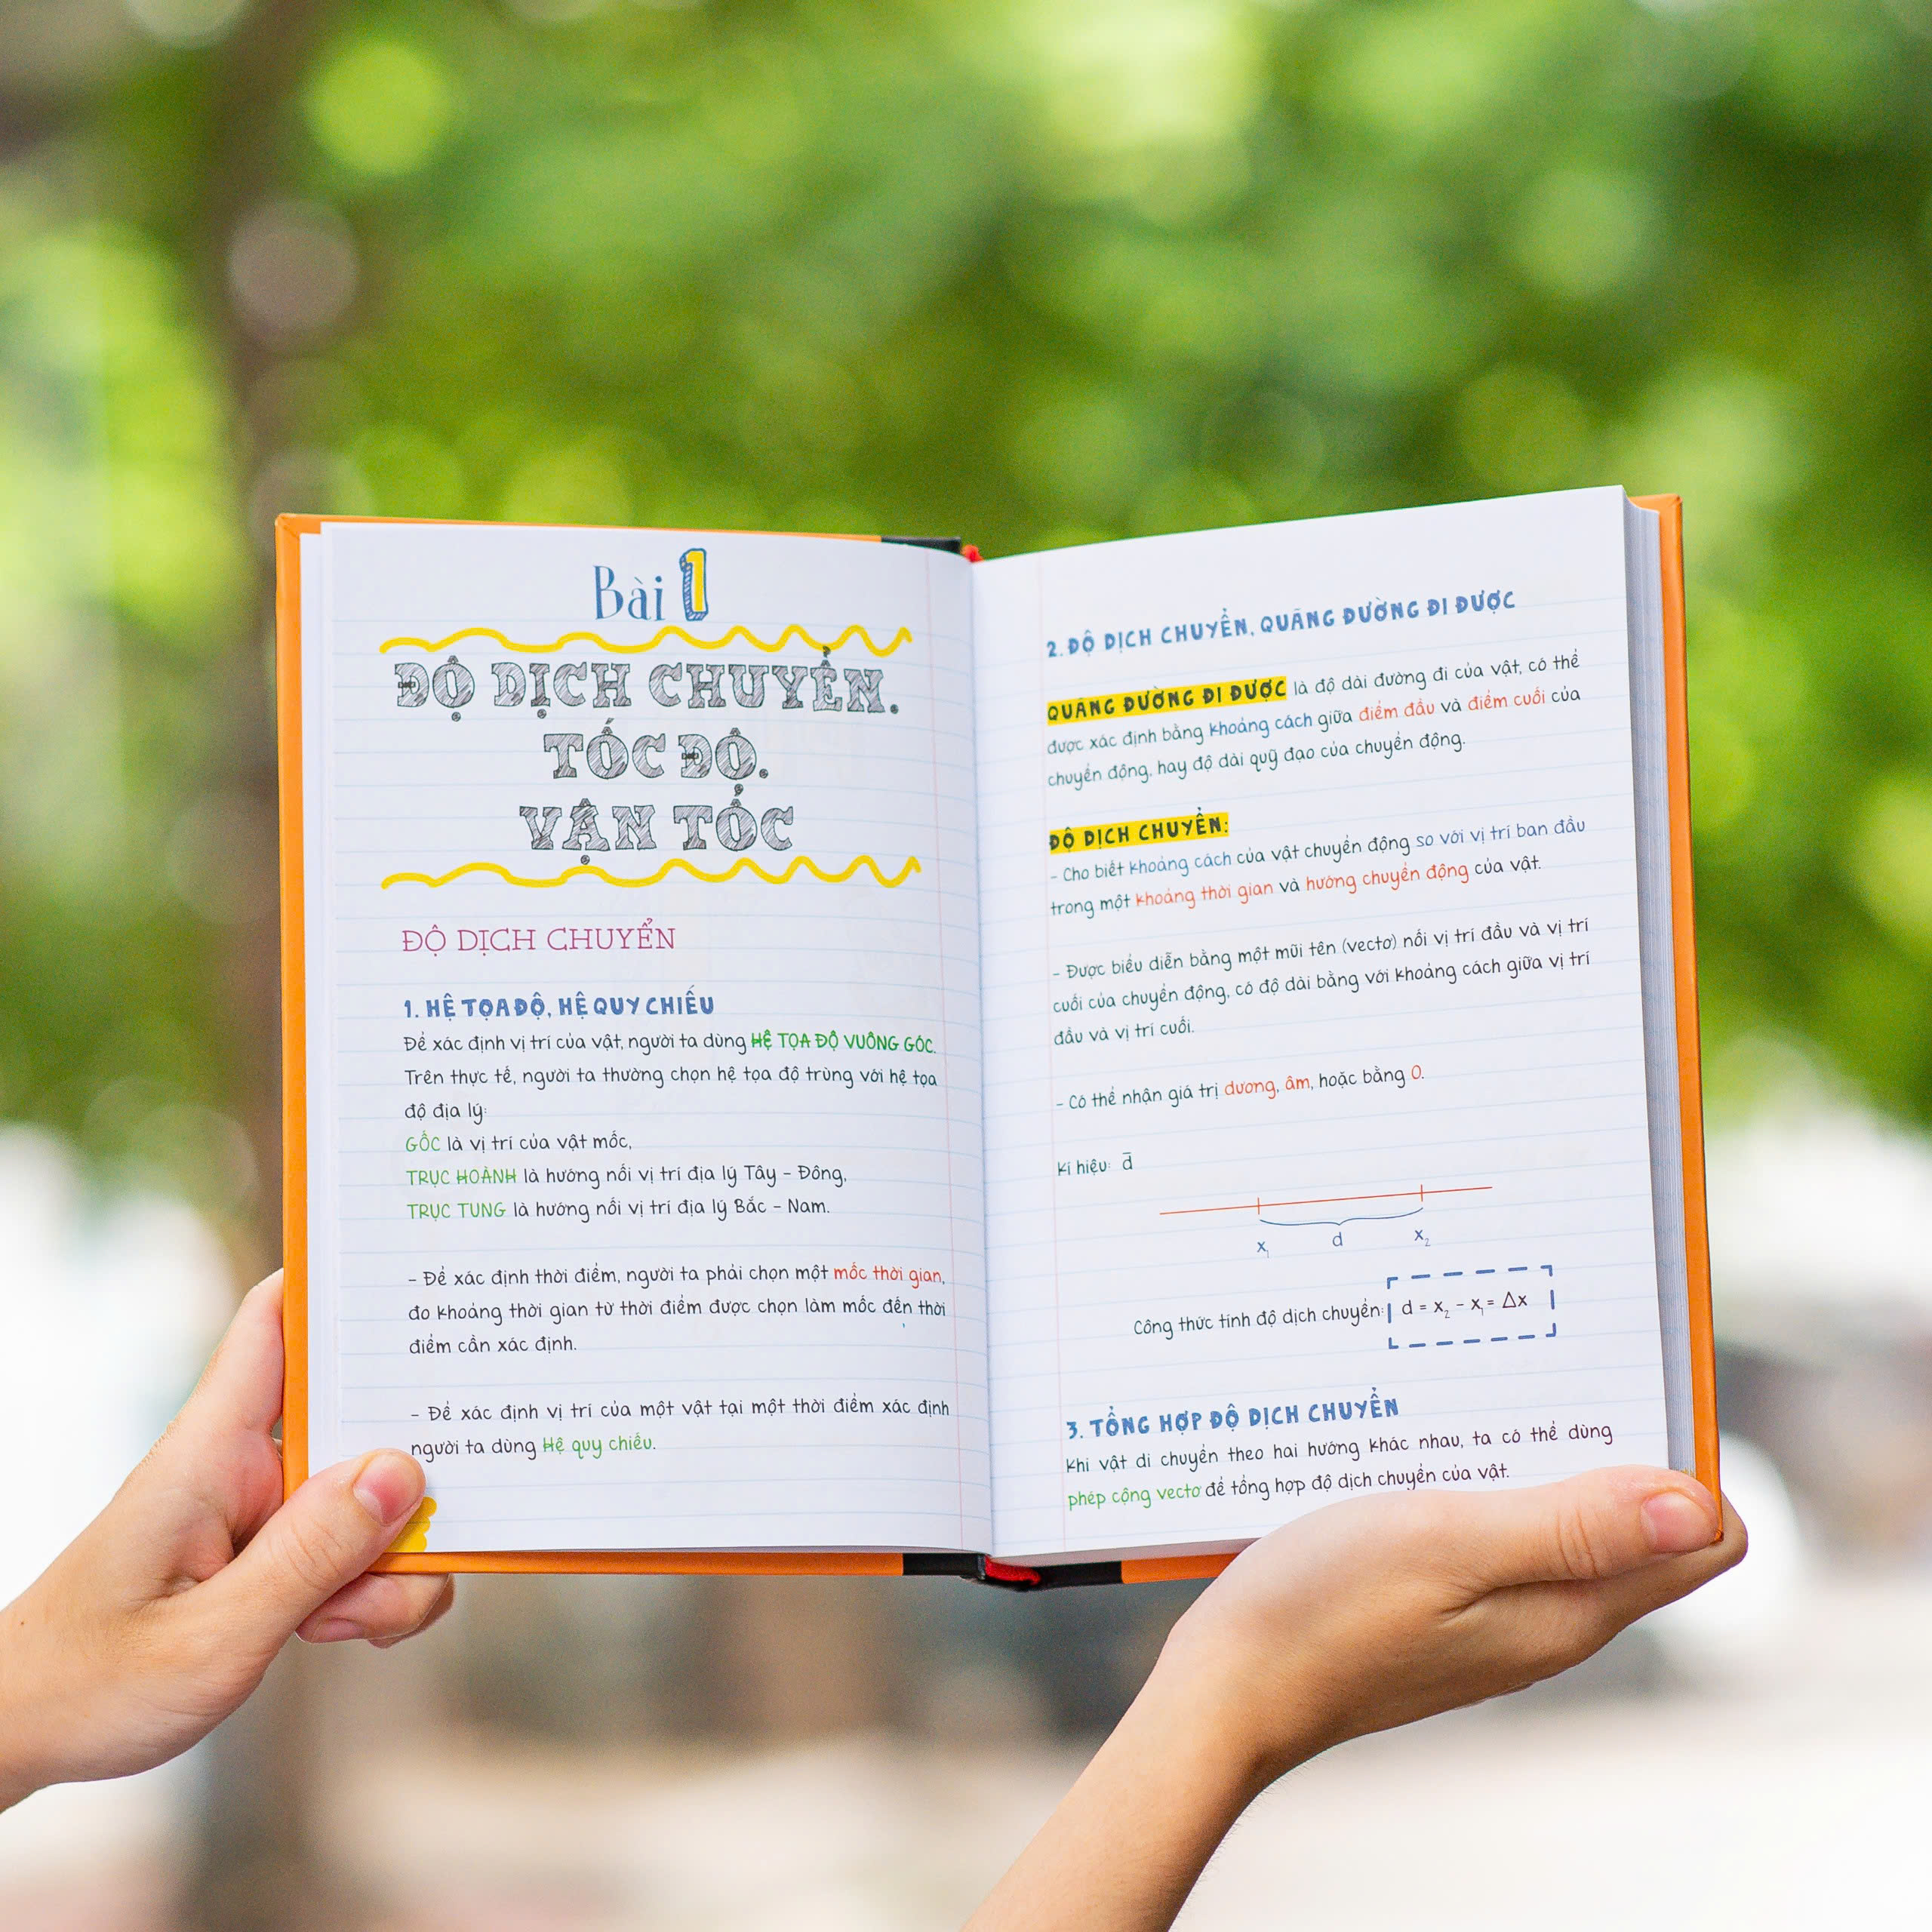 Bài 1
ĐỘ DỊCH CHUYỂN.
TỐC ĐỘ.
VẬN TỐC
ĐỘ DỊCH CHUYỂN
1. HỆ TỌA ĐỘ, HỆ QUY CHIẾU
Để xác định vị trí của vật, người ta dùng HỆ TỌA ĐỘ VUÔNG GÓC.
Trên thực tế, người ta thường chọn hệ tọa độ trùng với hệ tọa
độ địa lý:
GỐC là vị trí của vật mốc,
TRỤC HOÀNH là hướng nối vị trí địa lý Tây - Đông,
TRỤC TUNG là hướng nối vị trí địa lý Bắc - Nam.
- Để xác định thời điểm, người ta phải chọn một mốc thời gian,
đo khoảng thời gian từ thời điểm được chọn làm mốc đến thời
điểm cần xác định.
- Để xác định vị trí của một vật tại một thời điểm xác định
người ta dùng Hệ quy chiếu.
2. ĐỘ DỊCH CHUYỂN, QUÃNG ĐƯỜNG ĐI ĐƯỢC
QUÃNG ĐƯỜNG ĐI ĐƯỢC là độ dài đường đi của vật, có thể
được xác định bằng khoảng cách giữa điểm đầu và điểm cuối của
chuyển động, hay độ dài quỹ đạo của chuyển động.
ĐỘ DỊCH CHUYỂN:
- Cho biết khoảng cách của vật chuyển động so với vị trí ban đầu
trong một khoảng thời gian và hướng chuyển động của vật.
- Được biểu diễn bằng một mũi tên (vectơ) nối vị trí đầu và vị trí
cuối của chuyển động, có độ dài bằng với khoảng cách giữa vị trí
đầu và vị trí cuối.
- Có thể nhận giá trị dương, âm, hoặc bằng 0.
Kí hiệu: d̄
x₁ d x₂
Công thức tính độ dịch chuyển: d = x₂ - x₁ = Δx
3. TỔNG HỢP ĐỘ DỊCH CHUYỂN
Khi vật di chuyển theo hai hướng khác nhau, ta có thể dùng
phép cộng vectơ để tổng hợp độ dịch chuyển của vật.